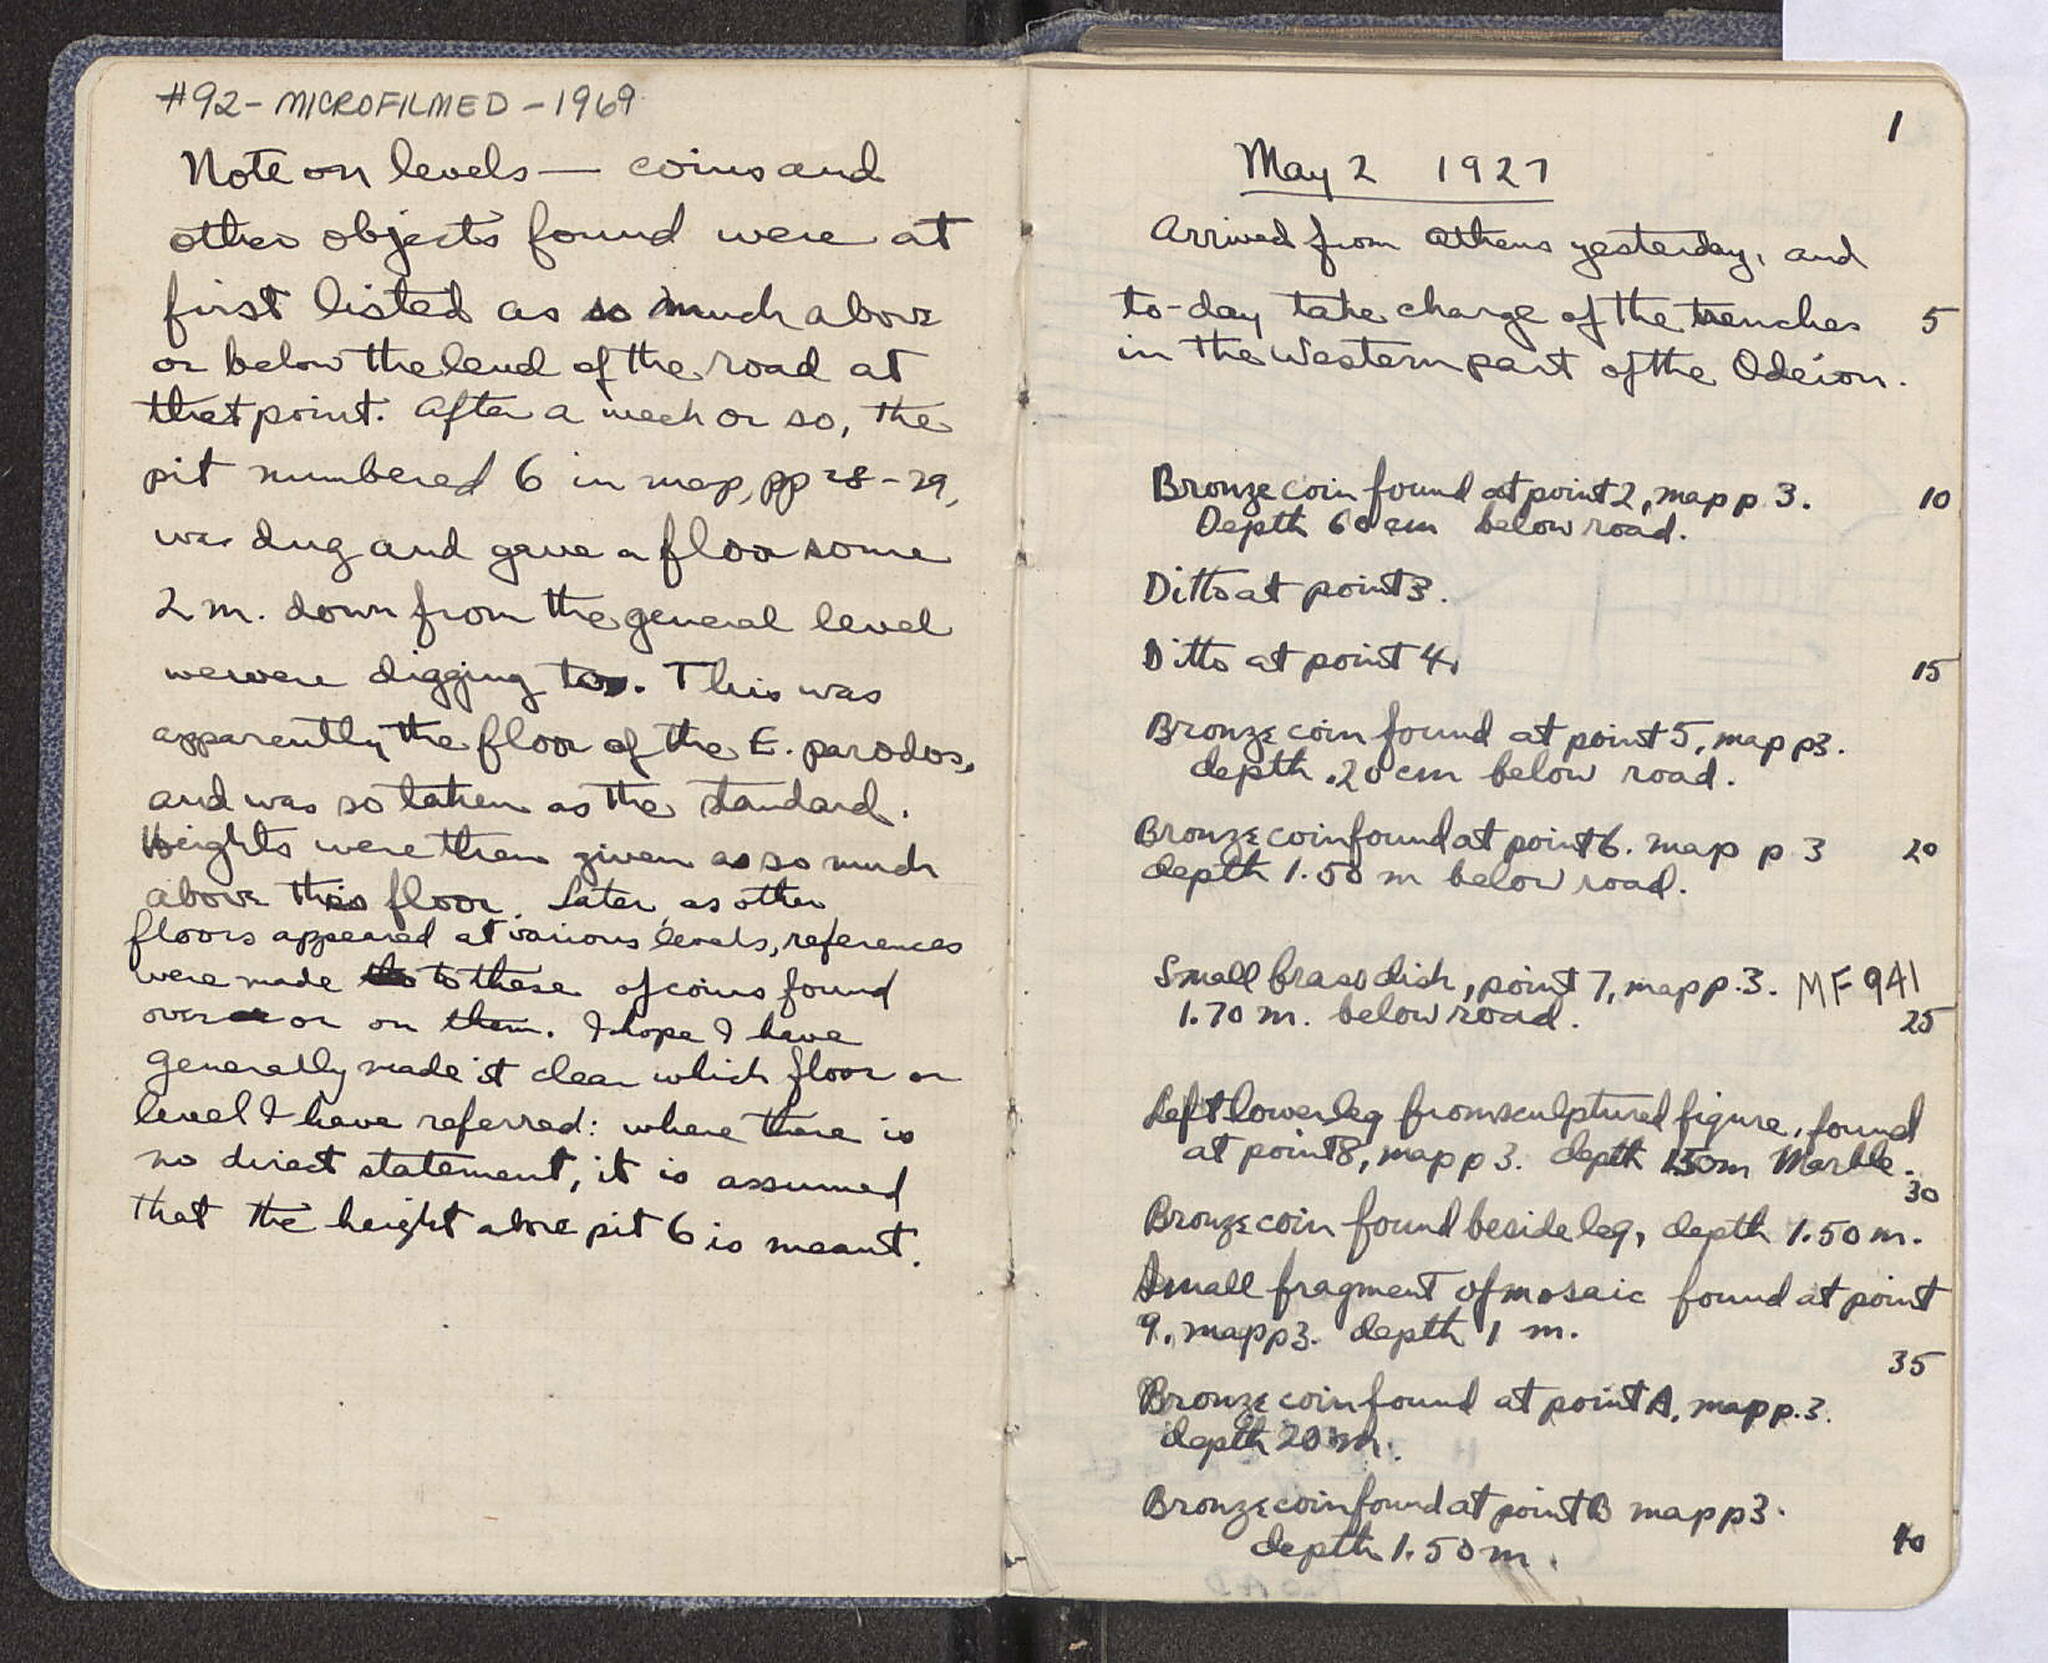 #92 - MICROFILMED - 1969
Note on levels — coins and
other objects found were at
first listed as so much above
or below the level of the road at
that point. After a week or so, the
pit numbered 6 in map, pp 28-29,
was dug and gave a floor some
2 m. down from the general level
we were digging to. This was
apparently the floor of the E. parodos,
and was so taken as the standard.
Heights were then given as so much
above this floor. Later, as other
floors appeared at various levels, references
were made to these of coins found
over or on them. I hope I have
generally made it clear which floor or
level I have referred: where there is
no direct statement, it is assumed
that the height above pit 6 is meant.
1
May 2 1927
Arrived from Athens yesterday, and
to-day take charge of the trenches 5
in the Western part of the Odeion.
Bronze coin found at point 2, map p 3. 10
Depth 60 cm below road.
Ditto at point 3.
Ditto at point 4. 15
Bronze coin found at point 5, map p 3.
depth .20 cm below road.
Bronze coin found at point 6. map p 3 20
depth 1.50 m below road.
Small brass dish, point 7, map p. 3. MF 941
1.70 m. below road. 25
Left lower leg from sculptured figure, found
at point 8, map p 3. depth 150m Marble.
30
Bronze coin found beside leg, depth 1.50 m.
Small fragment of mosaic found at point
9, map p 3. depth 1 m.
35
Bronze coin found at point A, map p. 3.
depth 20
Bronze coin found at point B map p 3.
depth 1.50 m. 40